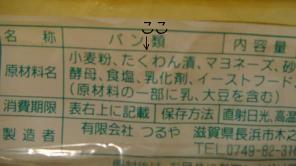 名称 パン類 内容量
原材料名 小麦粉、たくわん漬、マヨネーズ、砂
酵母、食塩、乳化剤、イーストフード、
(原材料の一部に乳、大豆を含む)
消費期限 表右上に記載 保存方法 直射日光、高温
製造者 有限会社 つるや 滋賀県長浜市木之
TEL0749-82-31